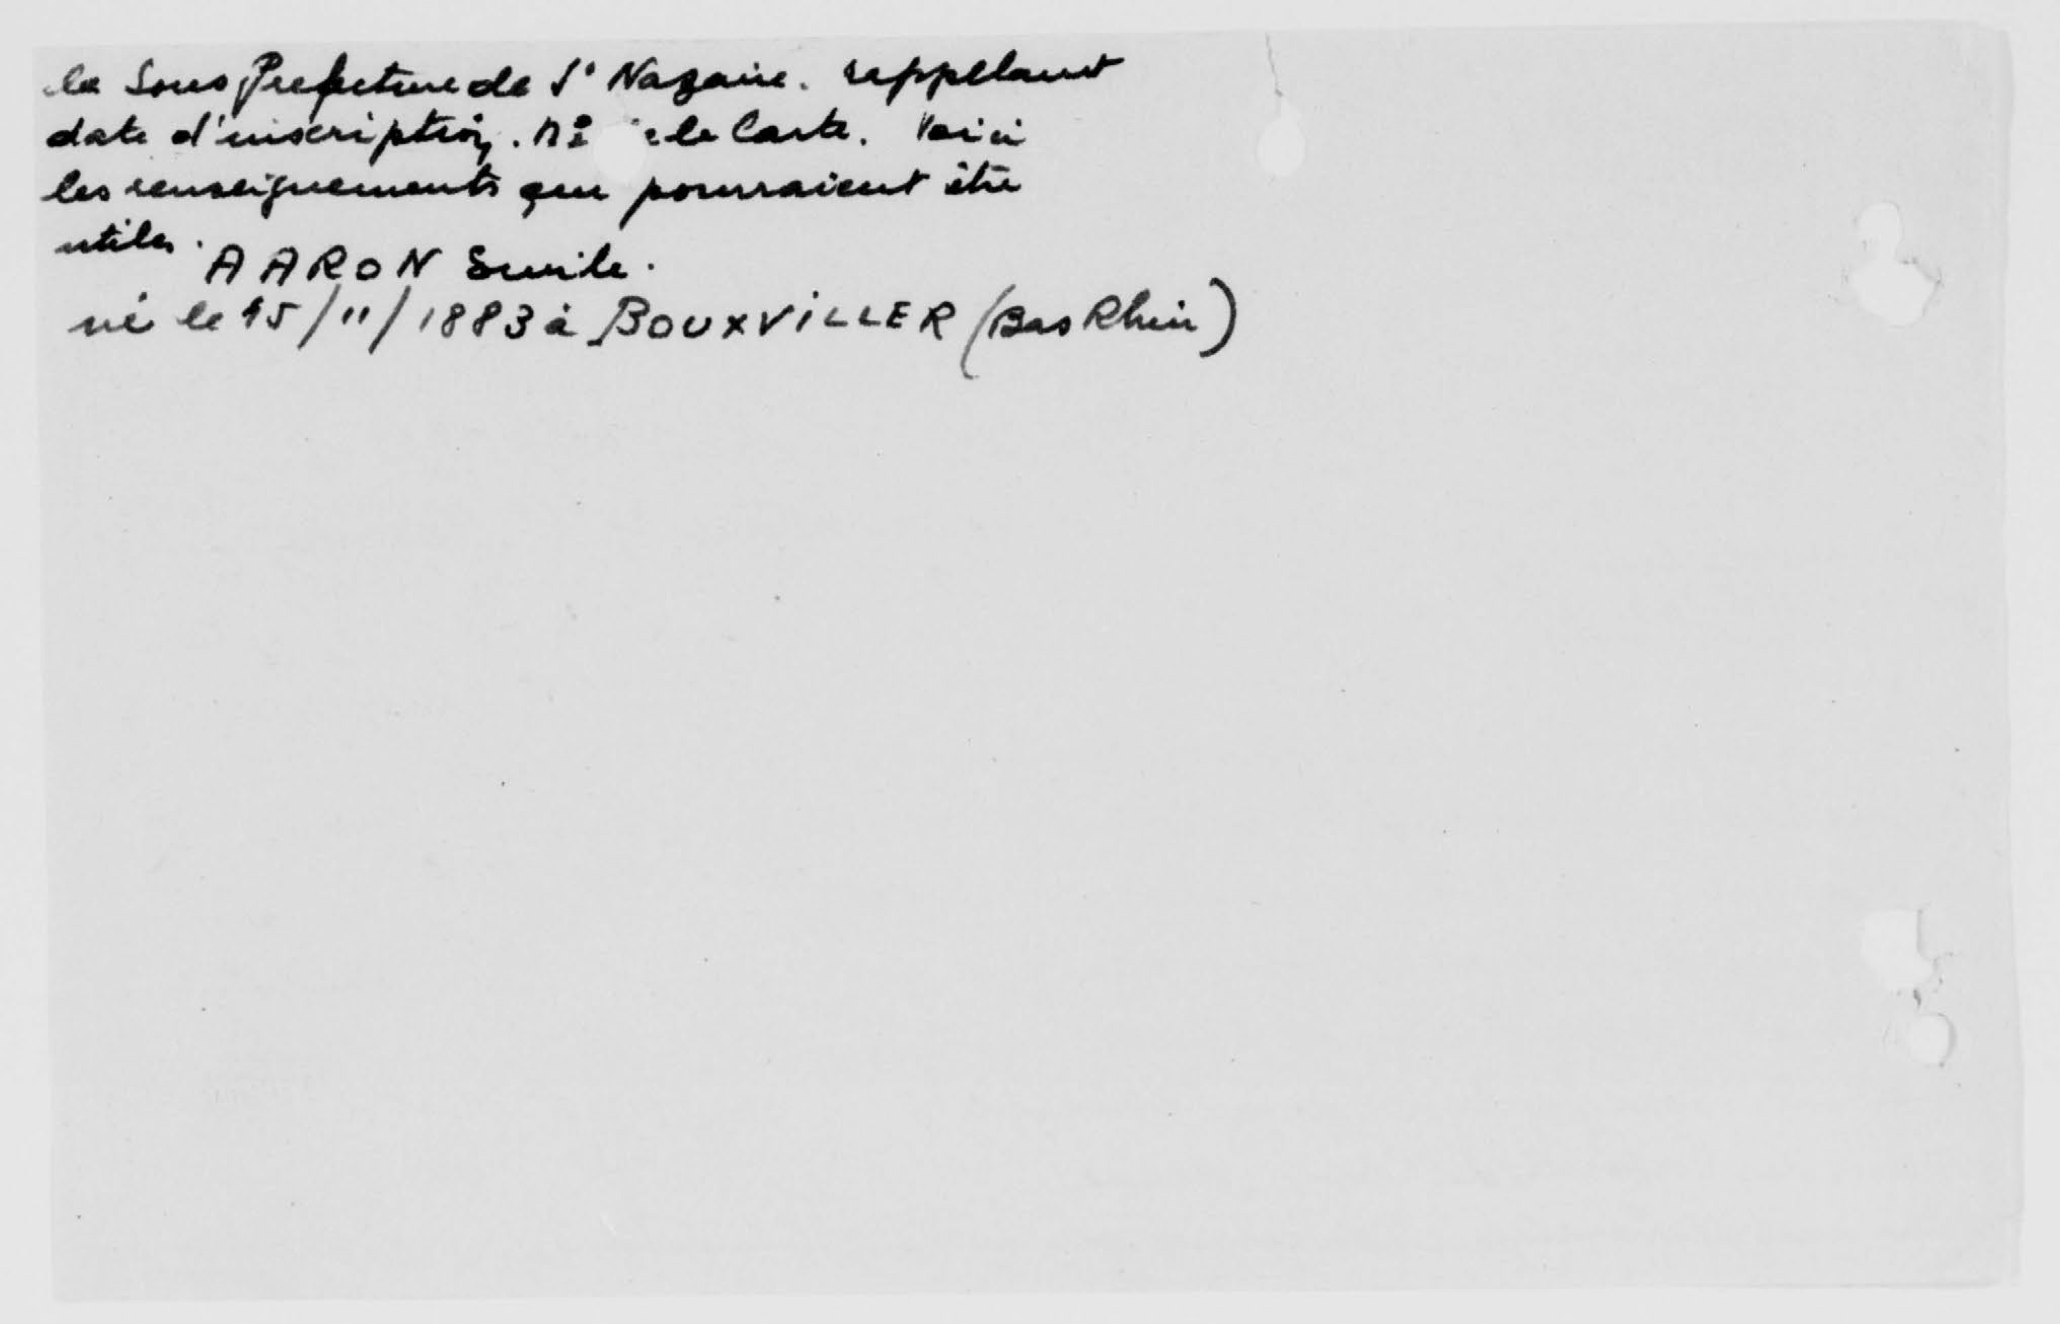 la Sous Prefecture de St Nazaire. rappelant
date d'inscription. No de la Carte. Voici
les renseignements qui pourraient être
utiles.
AARON Emile.
né le 15/11/1883 à BOUXVILLER (Bas Rhin)